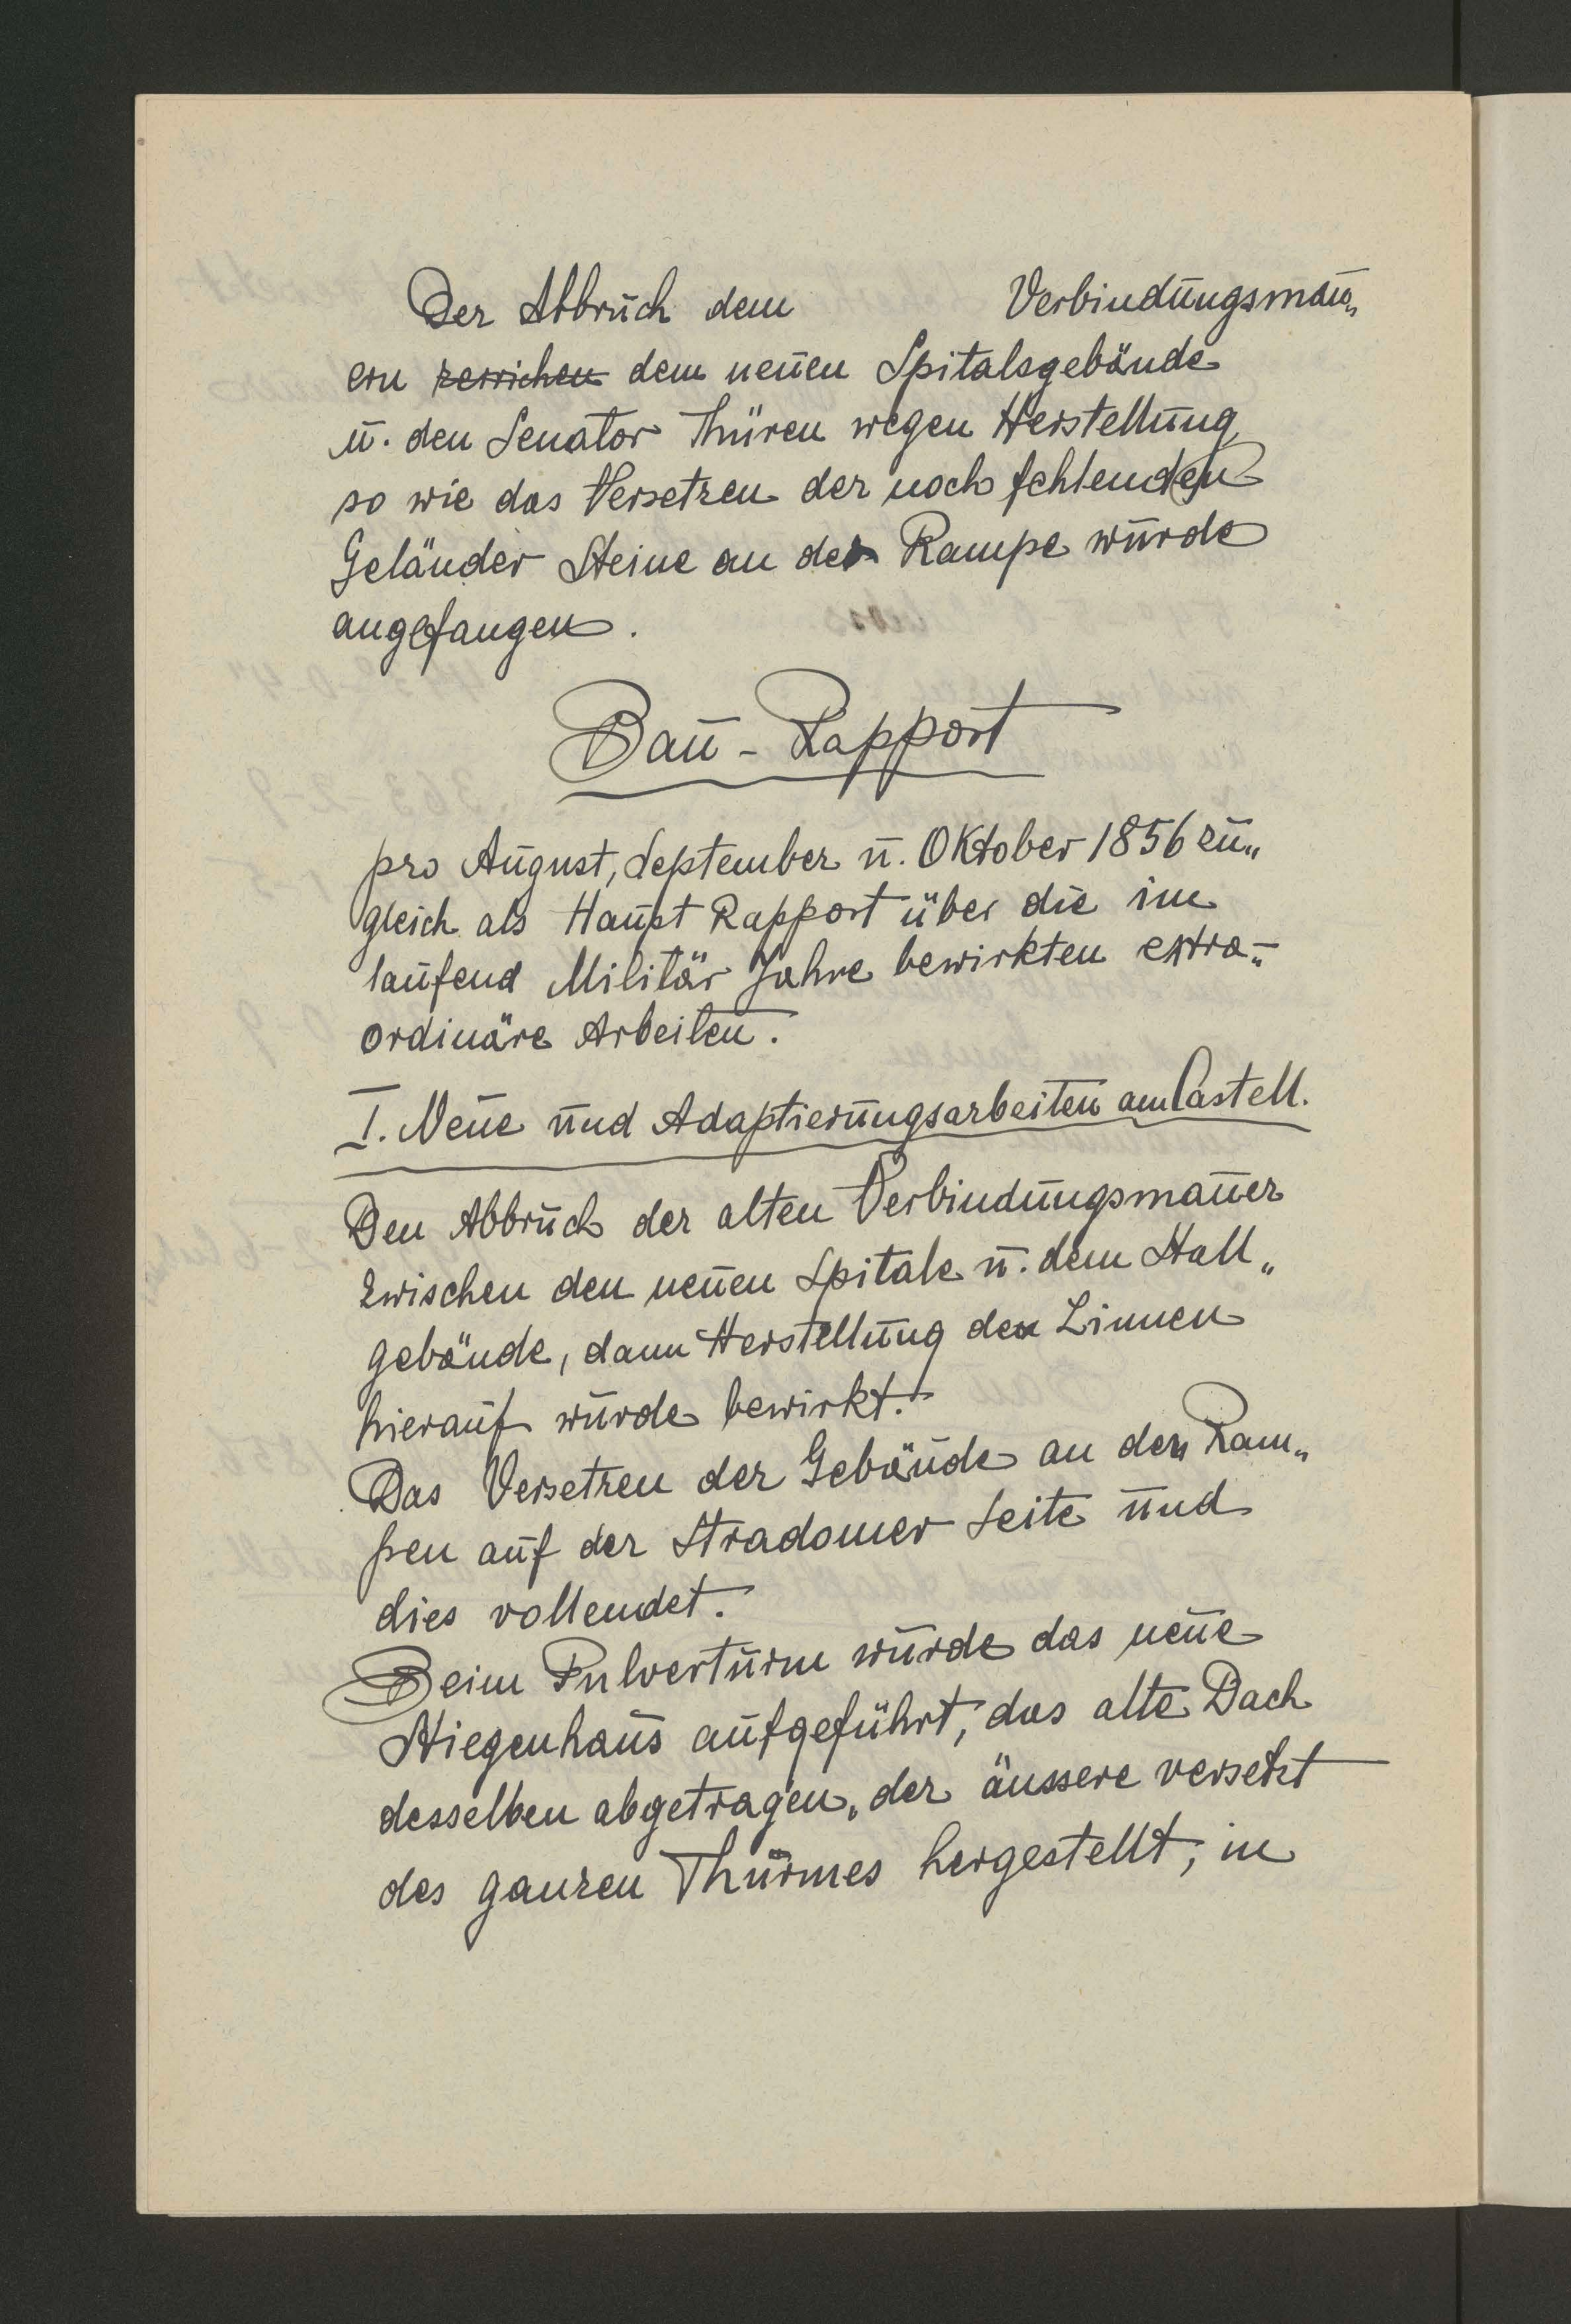 Der Abbruch dem Verbindungsmau„
ern zerrichen dem neuen Spitalsgebäude
u. den Senator Thüren wegen Herstellung
so wie das Versetzen der noch fehlenden
Geländer Steine an der Rampe wurde
angefangen.
Bau - Rapport
pro August, September u. Oktober 1856 zu„
gleich als Haupt Rapport über die im
laufend Militär Jahre bewirkten extra-„
ordinäre Arbeiten.
I. Neue und Adaptierungsarbeiten am Castell.
Den Abbruch der alten Verbindungsmauer
zwischen den neuen Spitale u. dem Stall„
gebäude, dann Herstellung der Linnen
hierauf wurde bewirkt.
Das Versetzen der Gebäude an den Ram„
pen auf der Stradomer Seite und
dies vollendet.
Beim Pulverturm wurde das neue
Stiegenhaus aufgeführt, das alte Dach
desselben abgetragen, der äussere versetzt
des ganzen Thurmes hergestellt, in